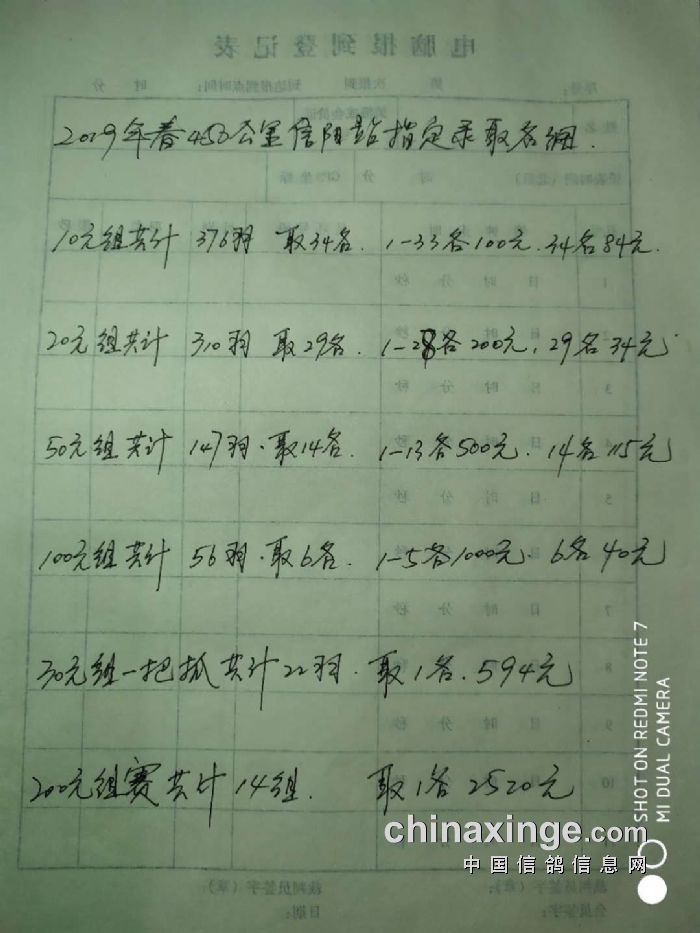 电脑报到登记表
2019年春450公里信阳站指定录取名细.
10元组共计 376羽 取34名. 1-33名100元. 34名84元.
20元组共计 310羽 取29名. 1-28名200元, 29名34元.
50元组共计 147羽. 取14名. 1-13名500元. 14名115元
100元组共计 56羽. 取6名. 1-5名1000元. 6名40元
30元组一把抓共计22羽. 取1名. 594元
200元组赛共计14组. 取1名 2520元
chinaxinge.com
中国信鸽信息网
SHOT ON REDMI NOTE 7
MI DUAL CAMERA